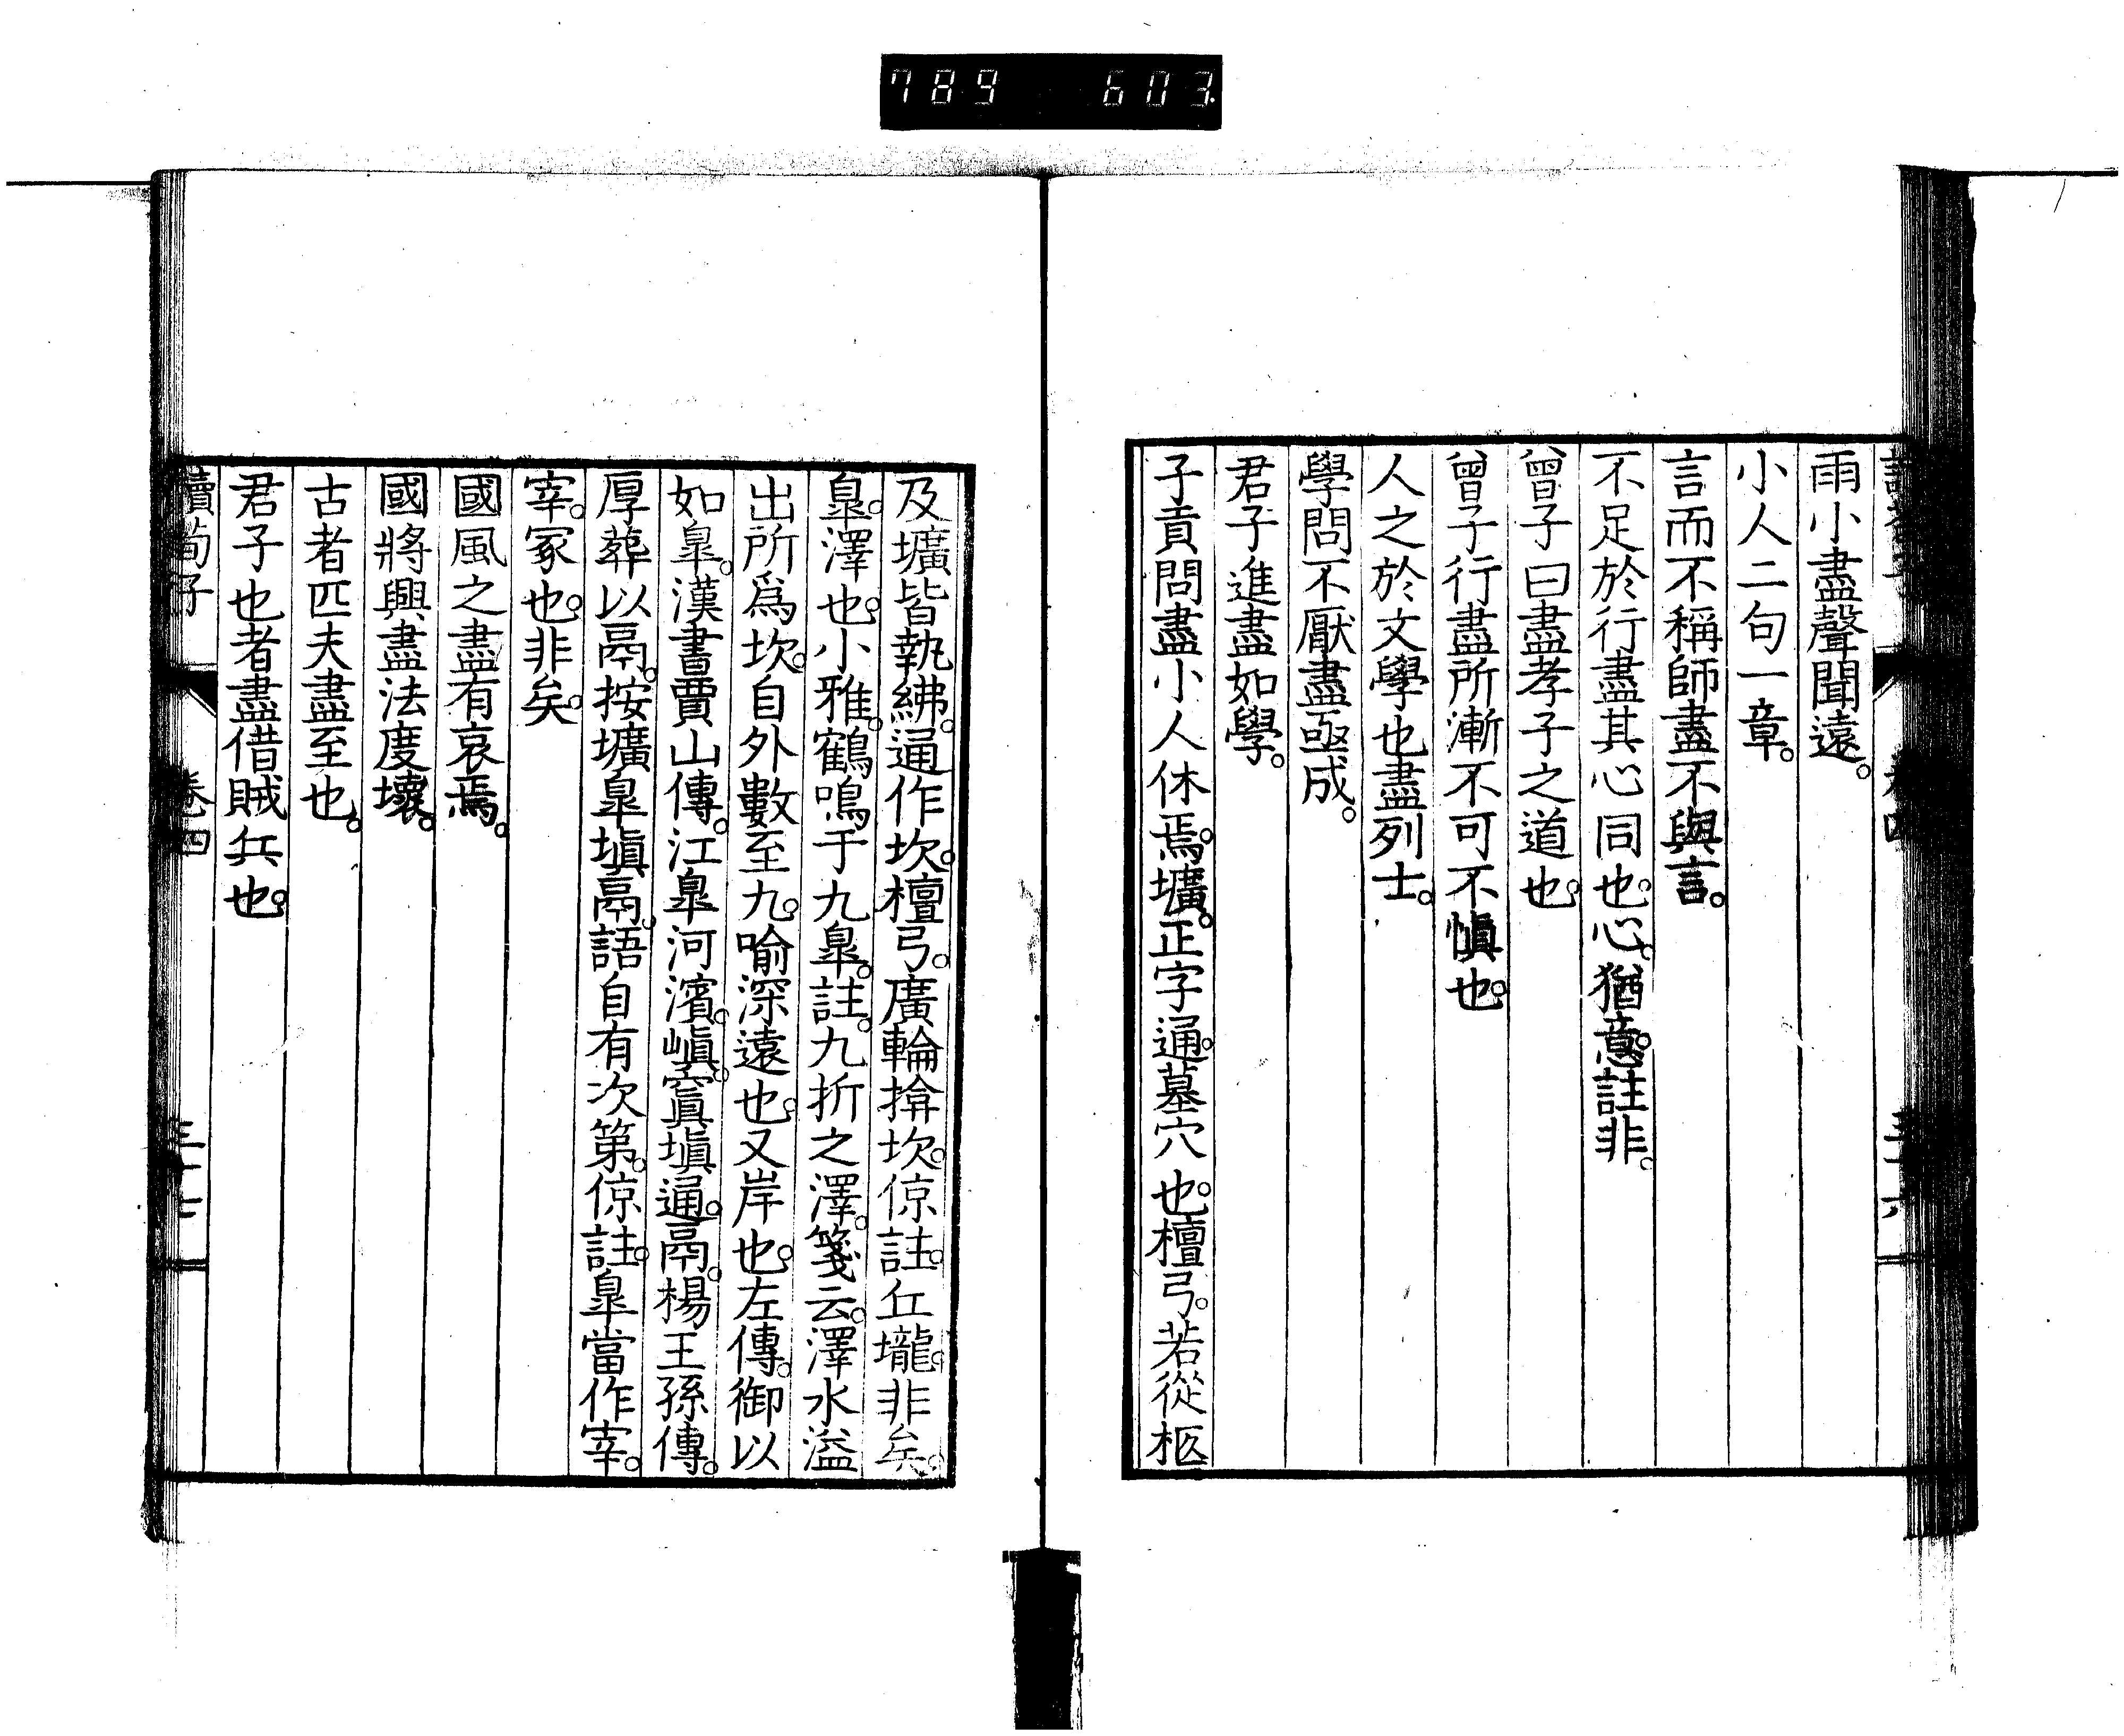 789 603
雨小盡聲聞遠。
小人二句一章。
言而不稱師盡不與言。
不足於行盡其心同也。心。猶意。註非。
曾子曰盡孝子之道也。
曾子行盡所漸不可不愼也。
人之於文學也盡列士。
學問不厭盡亟成。
君子進盡如學。
子貢問盡小人休焉。壙。正字通。墓穴也。檀弓。若從柩
及壙皆執紼。通作坎。檀弓。廣輪揜坎。倞註。丘壠。非矣。
皐。澤也。小雅。鶴鳴于九皐。註。九折之澤。箋云。澤水溢
出所爲坎。自外數至九。喻深遠也。又岸也。左傳。御以
如皐。漢書賈山傳。江皐河濱。嵮。窴塡通。鬲。楊王孫傳。
厚葬以鬲。按壙皐塡鬲。語自有次第。倞註。皐當作宰。
宰。冢也。非矣。
國風之盡有哀焉。
國將興盡法度壞。
古者匹夫盡至也。
君子也者盡借賊兵也。
讀荀子 卷四 三十七